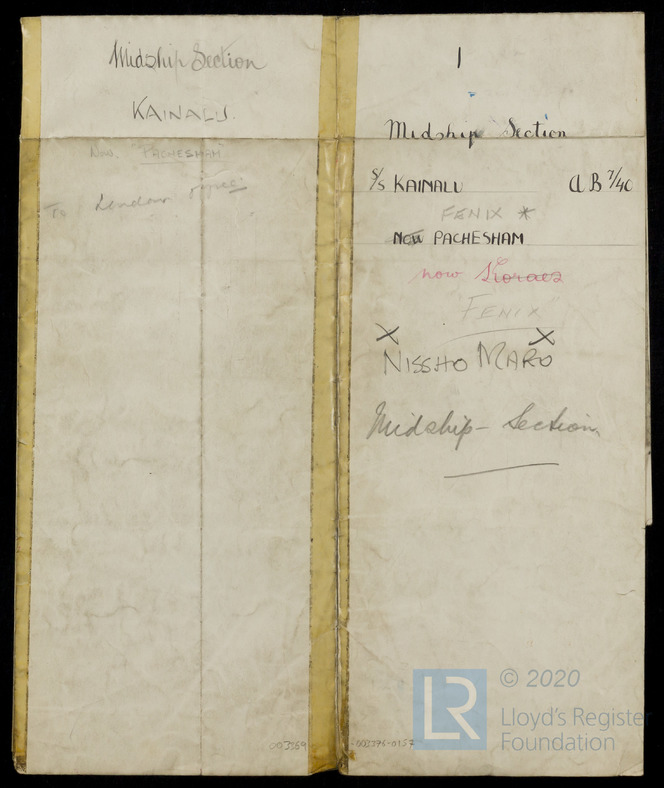 Midship Section
KAINALU.
Now. "PACHESHAM"
To London
1
Midship Section
S/S KAINALU
A B 7/40
FENIX *
NOW PACHESHAM
now
"FENIX"
X X
NISSHO MARU
Midship - Section
003269
003296-0157
LR
© 2020
Lloyd's Register
Foundation